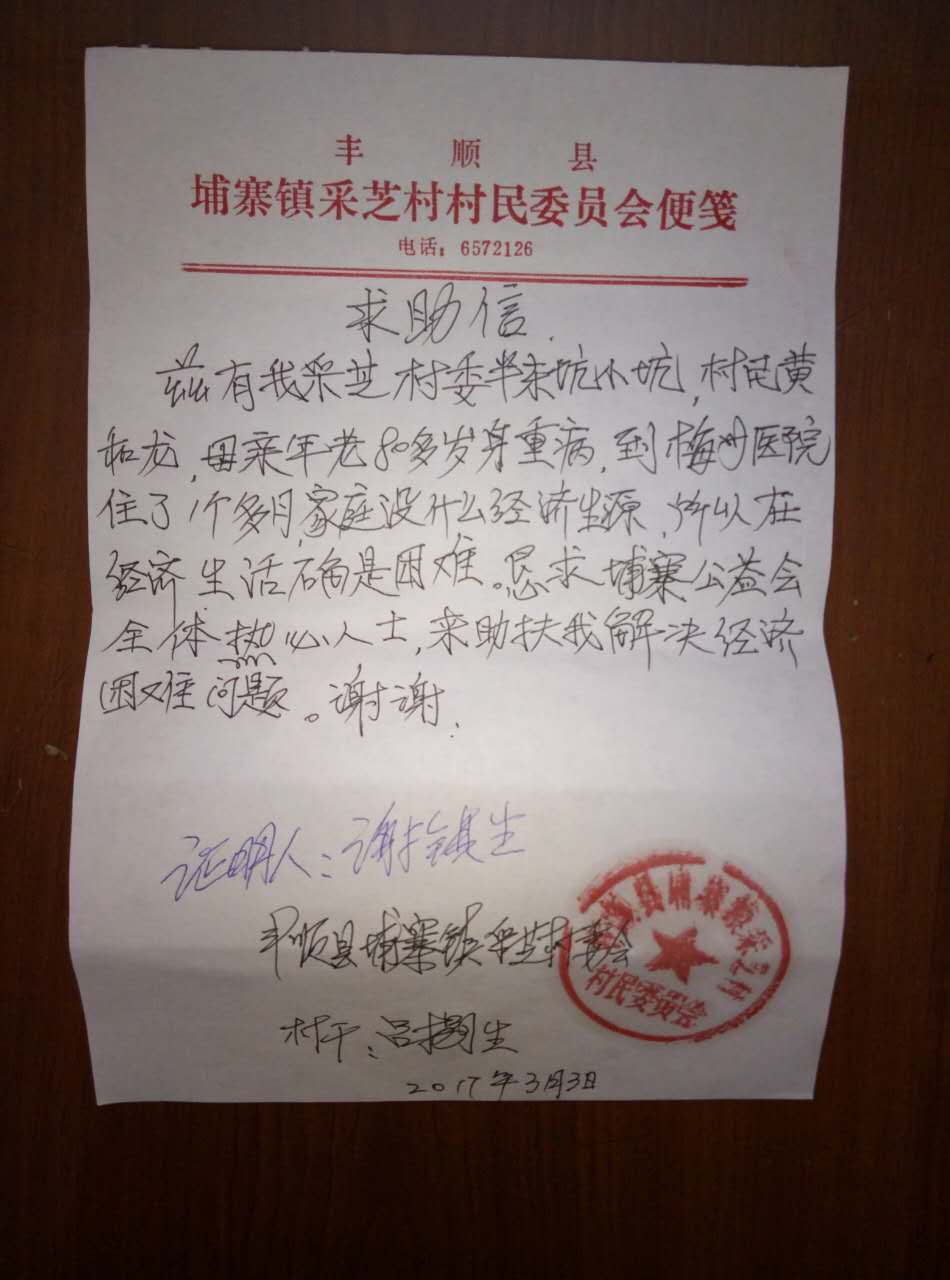 丰顺县
埔寨镇采芝村村民委员会便笺
电话：6572126
求助信.
兹有我采芝村委半来坑小坑,村民黄
和龙,母亲年老80多岁身重病,到梅州医院
住了1个多月,家庭没什么经济生源,所以在
经济生活确是困难。恳求埔寨公益会
全体热心人士,来助扶我解决经济
困难问题。谢谢.
证明人:谢镇生
丰顺县埔寨镇采芝村委会
村干:吕生
2017年3月3日
丰顺县埔寨镇采芝村
村民委员会